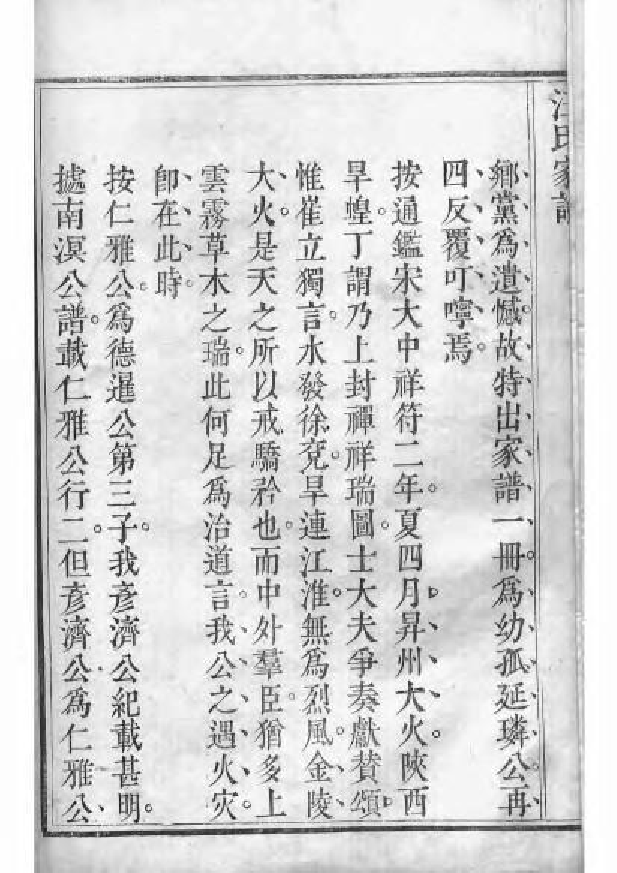 汪氏家譜
鄉黨爲遺憾故特出家譜一冊爲幼孤延璘公再
四反覆叮嚀焉
按通鑑宋大中祥符二年夏四月昇州大火陝西
旱蝗丁謂乃上封禪祥瑞圖士大夫爭奏獻贊頌
惟崔立獨言水發徐兗旱連江淮無爲烈風金陵
大火是天之所以戒驕矜也而中外羣臣猶多上
雲霧草木之瑞此何足爲治道言我公之遇火灾
卽在此時
按仁雅公爲德暹公第三子我彥濟公紀載甚明
據南溟公譜載仁雅公行二但彥濟公爲仁雅公